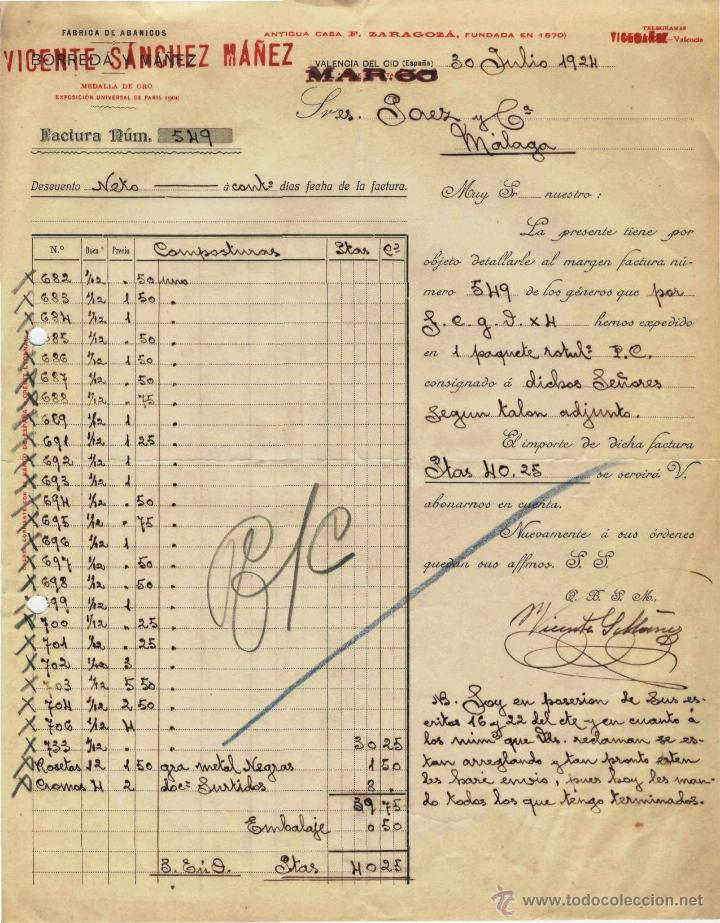 FÁBRICA DE ABANICOS
ANTIGUA CASA F. ZARAGOZÁ, FUNDADA EN 1870)
TELEGRAMAS
BORREDÁ Y MÁÑEZ
VICENTE SÁNCHEZ MÁÑEZ
—Valencia
VALENCIA DEL CID (España) 30 Julio 1924
MEDALLA DE ORO
EXPOSICIÓN UNIVERSAL DE PARIS 1900
Sres. Saez y Cª
Málaga
Factura Núm. 549
Descuento Neto á contº días fecha de la factura.
N.º Docª Precio Composturas Ptas Cs
682 1/12 . 50 uno
683 1/12 1 50 "
684 1/12 1 "
685 1/12 . 50 "
686 1/12 1 50 "
687 1/12 . 50 "
688 1/12 . 75 "
689 1/12 1 "
691 1/12 1 25 "
692 1/12 1 "
693 1/12 1 "
694 1/12 . 50 "
695 1/12 . 75 "
696 1/12 1 "
697 1/12 . 50 "
698 1/12 . 50 "
699 1/12 1 "
700 1/12 . 25 "
701 1/12 . 25 "
702 1/12 3 "
703 1/12 5 50 "
704 1/12 2 50 "
706 1/12 4 "
733 1/12 . " 30 25
Rosetas 12 1 50 gra metal Negras 1 50
Cromos 4 2 docª Surtidos 8 .
39 75
Embalaje 0 50
Ptas 40 25
Muy Sr nuestro:
La presente tiene por
objeto detallarle al margen factura nú-
mero 549 de los géneros que por
hemos expedido
en 1 paquete rotulº P.C.
consignado á dichos Señores
Segun talon adjunto.
El importe de dicha factura
Ptas 40,25 se servirá V.
abonarnos en cuenta.
Nuevamente á sus órdenes
quedan sus affmos. S. S.
Q. B. S. M.
Vicente S. Máñez
NB. Soy en posesion de sus es-
critos 16 y 22 del cte y en cuanto á
los numº que Vds. reclaman se es-
tan arreglando y tan pronto esten
les haré envio, pues hoy les man-
do todos los que tengo terminados.
todocoleccion
© www.todocoleccion.net